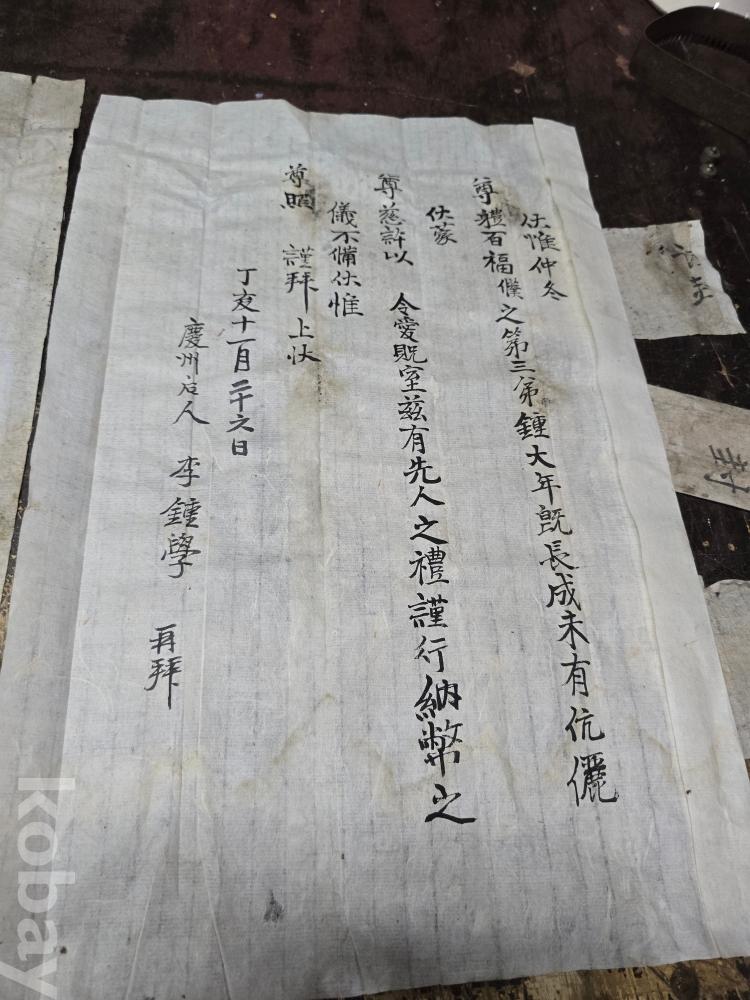 伏惟仲冬
尊軆百福僕之第三弟鍾大年旣長成未有伉儷
伏蒙
尊慈許以 令愛貺室玆有先人之禮謹行納幣之
儀不備伏惟
尊照 謹拜 上狀
丁亥十一月二十六日
慶州后人 李鍾學 再拜
封
kobay